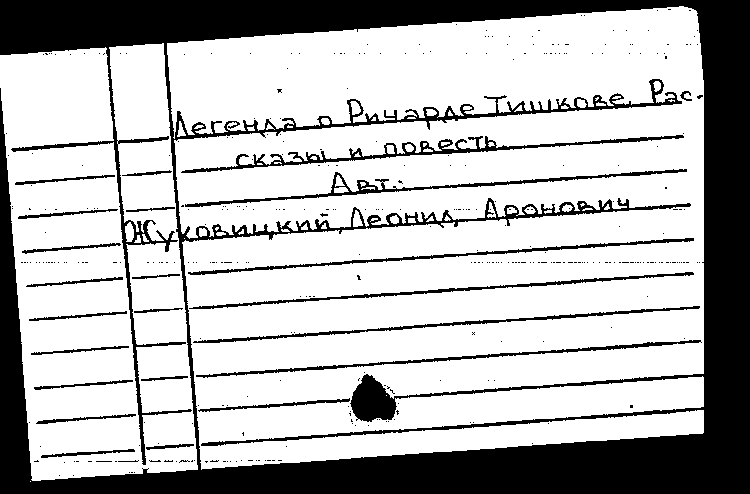 Легенда о Ричарде Тишкове. Рас-
сказы и повесть.
Авт.:
Жуковицкий, Леонид Аронович